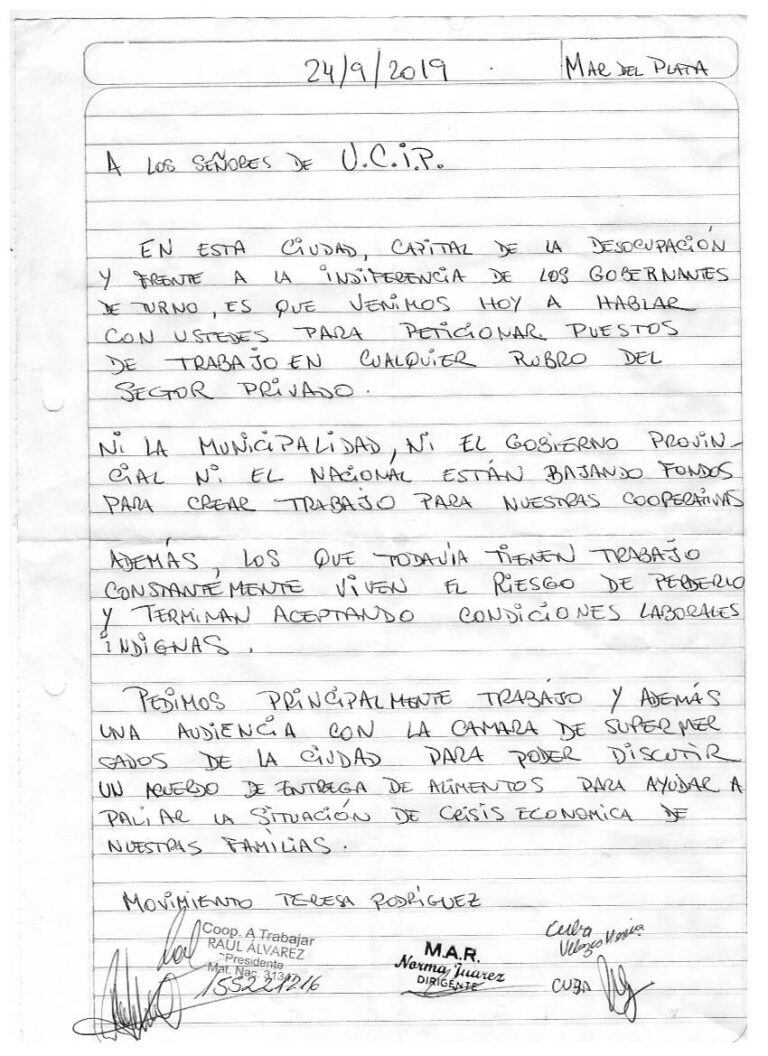 24/9/2019 . MAR DEL PLATA
A LOS SEÑORES DE U.C.i.P.
EN ESTA CIUDAD, CAPITAL DE LA DESOCUPACIÓN
Y FRENTE A LA INDIFERENCIA DE LOS GOBERNANTES
DE TURNO, ES QUE VENIMOS HOY A HABLAR
CON USTEDES PARA PETICIONAR PUESTOS
DE TRABAJO EN CUALQUIER RUBRO DEL
SECTOR PRIVADO.
NI LA MUNICIPALIDAD, NI EL GOBIERNO PROVIN-
CIAL NI EL NACIONAL ESTÁN BAJANDO FONDOS
PARA CREAR TRABAJO PARA NUESTRAS COOPERATIVAS
ADEMÁS, LOS QUE TODAVIA TIENEN TRABAJO
CONSTANTEMENTE VIVEN EL RIESGO DE PERDERLO
Y TERMINAN ACEPTANDO CONDICIONES LABORALES
INDIGNAS.
PEDIMOS PRINCIPALMENTE TRABAJO Y ADEMÁS
UNA AUDIENCIA CON LA CAMARA DE SUPERMER
CADOS DE LA CIUDAD PARA PODER DISCUTIR
UN ACUERDO DE ENTREGA DE ALIMENTOS PARA AYUDAR A
PALIAR LA SITUACIÓN DE CRISIS ECONOMICA DE
NUESTRAS FAMILIAS.
MOVIMIENTO TERESA RODRÍGUEZ
Coop. A Trabajar
RAÚL ÁLVAREZ
Presidente
Mat. Nac.
M.A.R.
Norma Juarez
DIRIGENTE
Cuba
CUBA